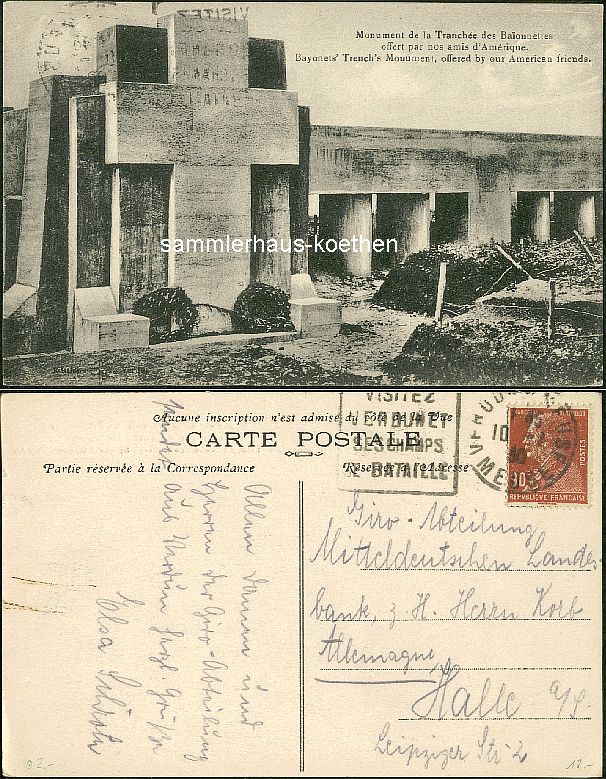 VISITEZ
Monument de la Tranchée des Baïonnettes
offert par nos amis d'Amérique.
Bayonets' Trench's Monument, offered by our American friends.
sammlerhaus-koethen
Aucune inscription n'est admise du côté de la Vue
CARTE POSTALE
Partie réservée à la Correspondance
Réservé à l'Adresse
VISITEZ
VERDUN ET
SES CHAMPS
DE BATAILLE
VERDUN
MEUSE
POSTES
RÉPUBLIQUE FRANÇAISE
Allen Damen und
Herren der Giro-Abteilung
aus Verdun herzl. Grüße
Elsa Schröter
Giro-Abteilung
Mitteldeutschen Landes-
bank, z. H. Herrn Korb
Allemagne
Halle a/S.
Leipziger Str. 2
2.-
12.-